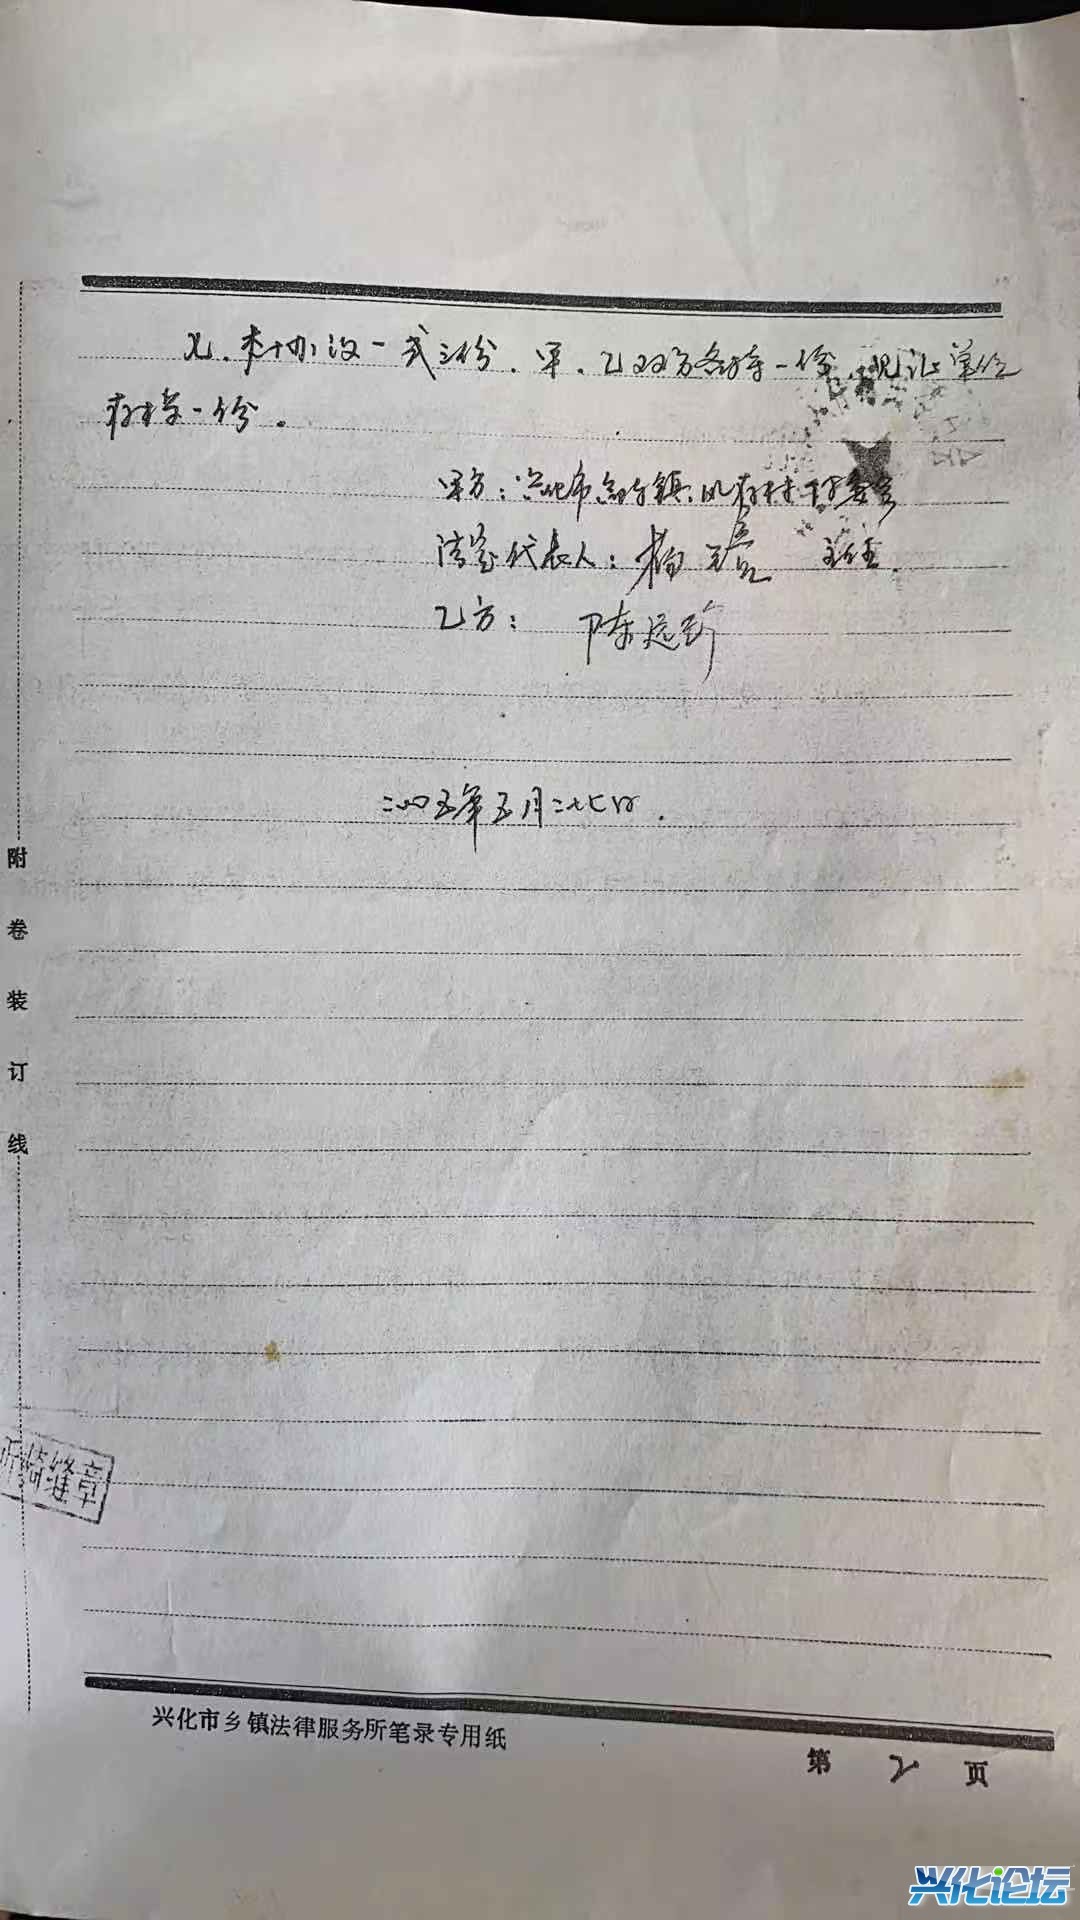 九、本协议一式三份，甲、乙双方各持一份，见证单位
存档一份。
甲方：兴化市 镇 村村委会
法定代表人：杨 主任
乙方：陈远
二〇〇五年五月二十七日.
附卷装订线
所骑缝章
兴化市乡镇法律服务所笔录专用纸
第 2 页
兴化论坛